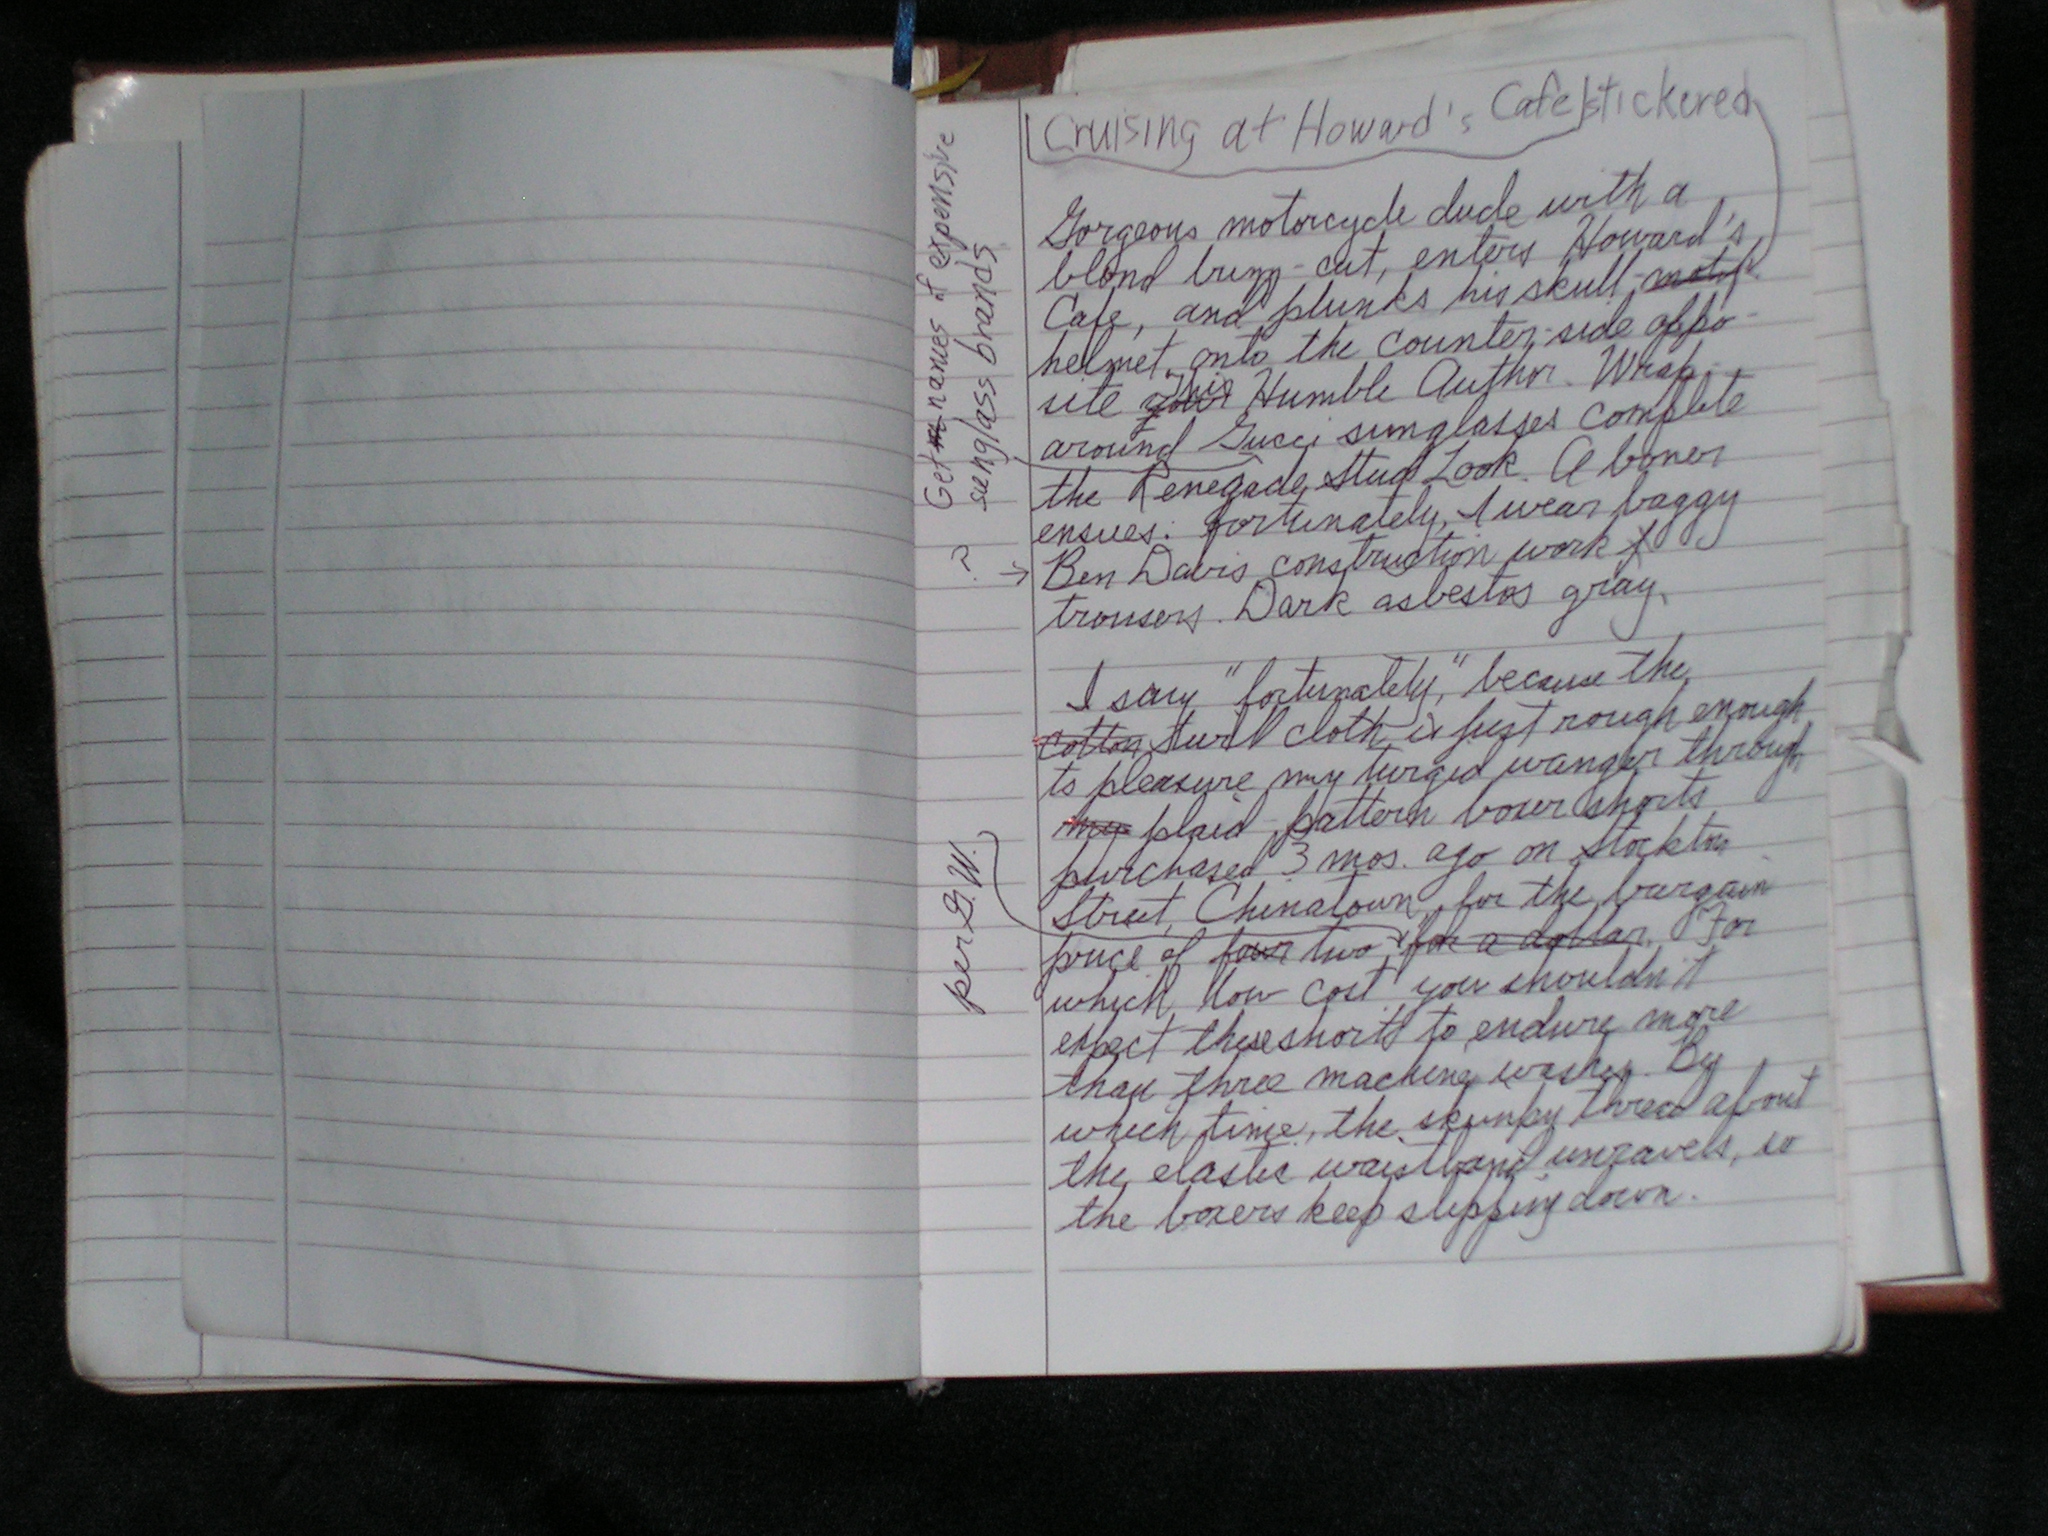 Cruising at Howard's Cafe stickered
Gorgeous motorcycle dude with a
blond buzz-cut, enters Howard's
Cafe, and plunks his skull-motif
helmet onto the counter-side oppo-
site your This Humble Author. Wrap-
around Gucci sunglasses complete
the Renegade Stud Look. A boner
ensues. Fortunately, I wear baggy
Ben Davis construction work
trousers. Dark asbestos gray.
I say "fortunately," because the
cotton twill cloth is just rough enough
to pleasure my turgid wanger through
my plaid-pattern boxer shorts
purchased 3 mos. ago on Stockton
Street, Chinatown, for the bargain
price of four two for a dollar. For
which low cost you shouldn't
expect these shorts to endure more
than three machine washes. By
which time, the skimpy thread about
the elastic waistband unravels, so
the boxers keep slipping down.
Get names of expensive
sunglass brands
?
per G.W.